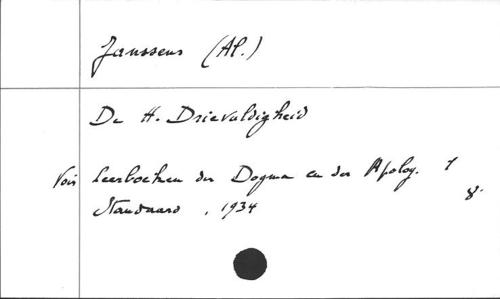 Janssens (Al.)
De H. Drievuldigheid
Voir Leerboeken der Dogma en der Apolog. 7
8.
Standaard, 1934